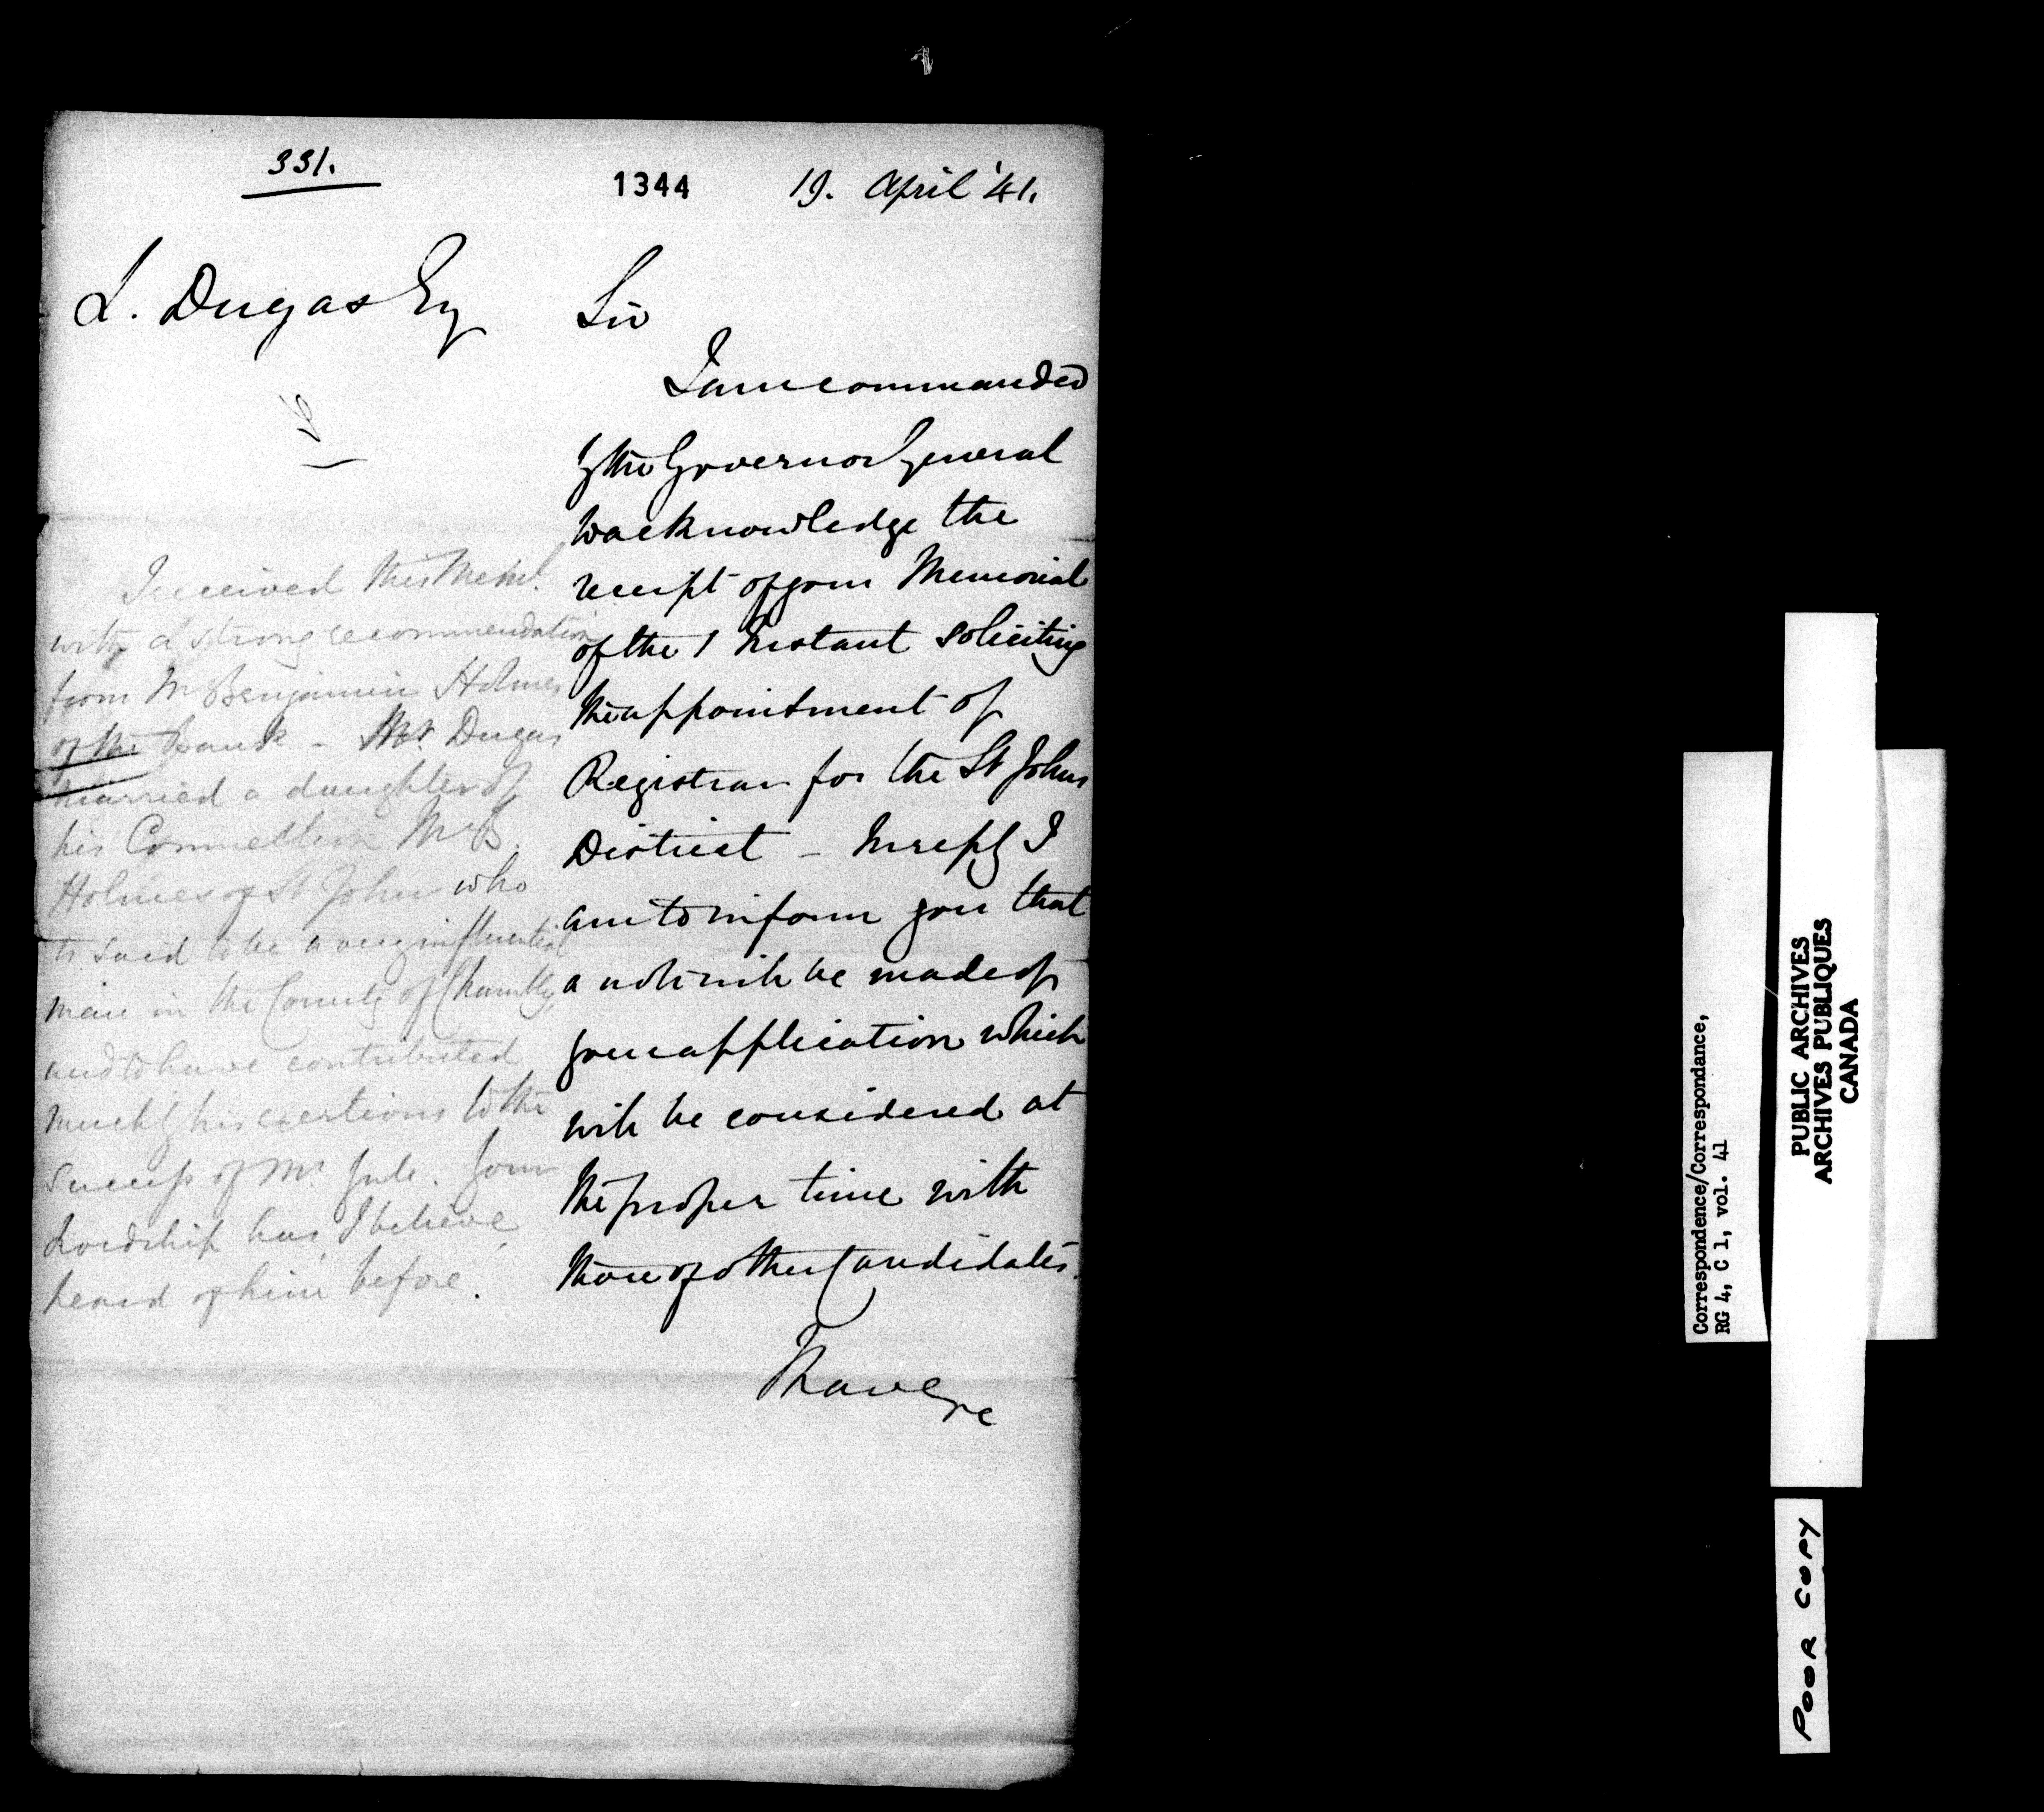 331.
1344
19. April '41.
L. Dugas Esq
Sir
I am commanded
by the Governor General
to acknowledge the
receipt of your Memorial
of the 1 Instant soliciting
the appointment of
Registrar for the St Johns
District - In reply I
am to inform you that
a note will be made of
your application which
will be considered at
the proper time with
those of other Candidates.
I have &c
I received this Meml.
with a strong recommendation
from Mr Benjamin Holmes
of the Bank - Mr. Dugas
married a daughter of
his Connection Mr B.
Holmes of St John who
is said to be a very influential
man in the County of Chambly,
and to have contributed
much by his exertions to the
success of Mr. Yule. Your
Lordship has, I believe,
heard of him before.
Correspondence/Correspondance,
RG 4, C 1, vol. 41
PUBLIC ARCHIVES
ARCHIVES PUBLIQUES
CANADA
POOR COPY